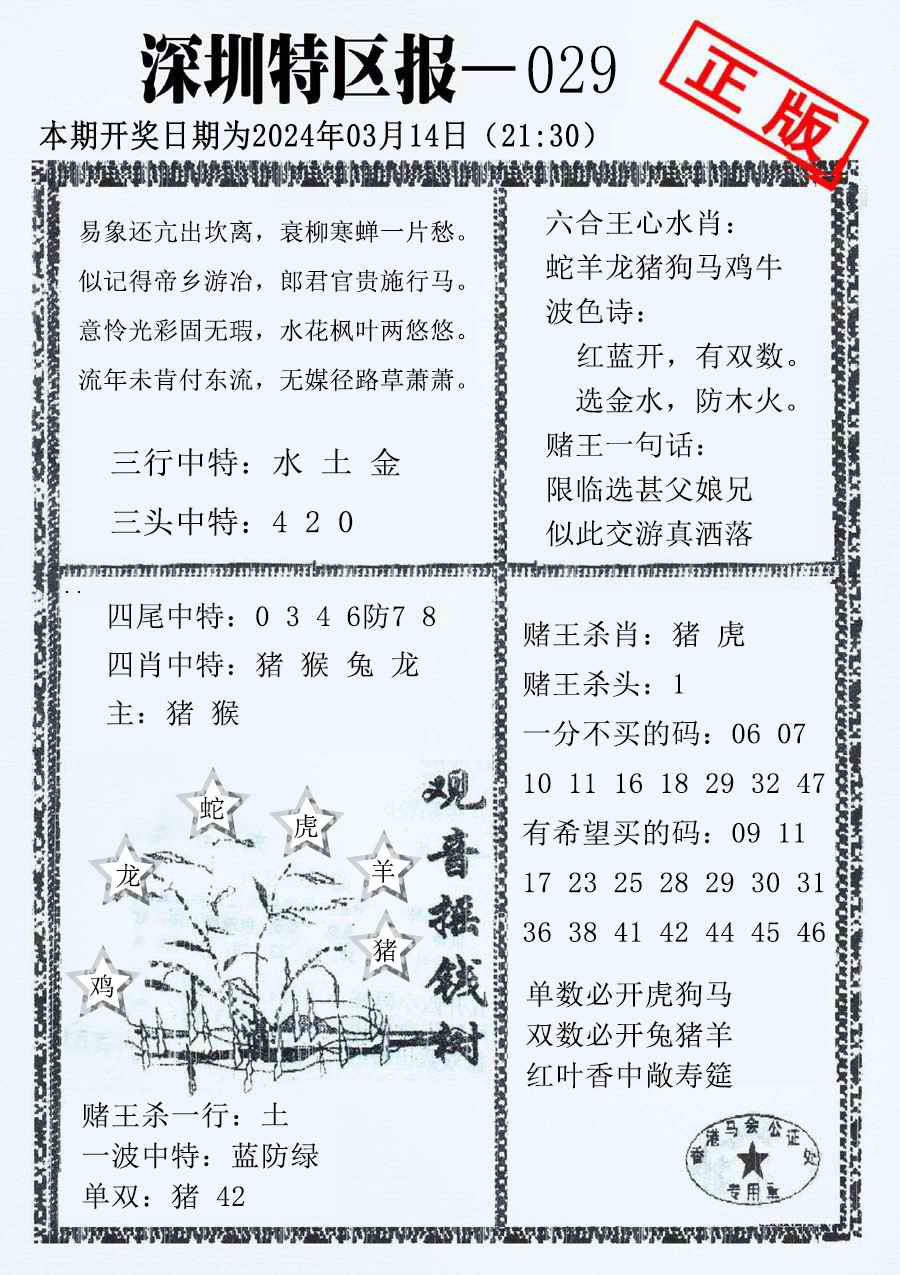 深圳特区报—029
正版
本期开奖日期为2024年03月14日（21:30）
易象还亢出坎离，衰柳寒蝉一片愁。
似记得帝乡游冶，郎君官贵施行马。
意怜光彩固无瑕，水花枫叶两悠悠。
流年未肯付东流，无媒径路草萧萧。
三行中特：水 土 金
三头中特：4 2 0
六合王心水肖：
蛇羊龙猪狗马鸡牛
波色诗：
红蓝开，有双数。
选金水，防木火。
赌王一句话：
限临选甚父娘兄
似此交游真洒落
四尾中特：0 3 4 6防7 8
四肖中特：猪 猴 兔 龙
主：猪 猴
蛇
虎
龙
羊
猪
鸡
观音摇钱树
赌王杀一行：土
一波中特：蓝防绿
单双：猪 42
赌王杀肖：猪 虎
赌王杀头：1
一分不买的码：06 07
10 11 16 18 29 32 47
有希望买的码：09 11
17 23 25 28 29 30 31
36 38 41 42 44 45 46
单数必开虎狗马
双数必开兔猪羊
红叶香中敞寿筵
香港马会公证处
专用章